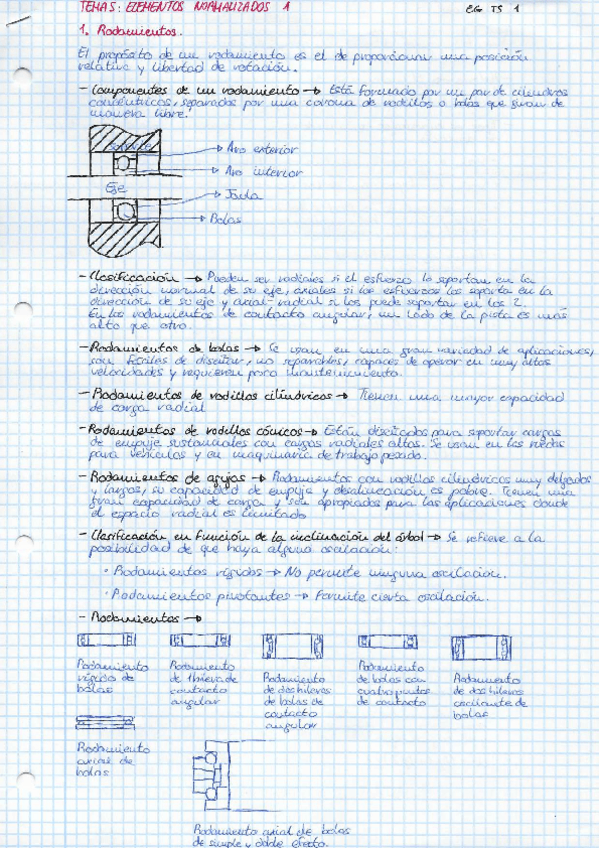 TEMA 5: ELEMENTOS NORMALIZADOS 1
EG T5 1
1. Rodamientos.
El propósito de un rodamiento es el de proporcionar una posición
relativa y libertad de rotación.
- Componentes de un rodamiento → Está formado por un par de cilindros
concéntricos, separados por una corona de rodillos o bolas que giran de
manera libre.
Soporte
Aro exterior
Aro interior
Eje
Jaula
Bolas
- Clasificación → Pueden ser radiales si el esfuerzo lo soportan en la
dirección normal de su eje, axiales si los esfuerzos los soporta en la
dirección de su eje y axial-radial si los puede soportar en los 2.
En los rodamientos de contacto angular, un lado de la pista es más
alto que otro.
- Rodamientos de bolas → Se usan en una gran variedad de aplicaciones,
son fáciles de diseñar, no separables, capaces de operar en muy altas
velocidades y requieren poco mantenimiento.
- Rodamientos de rodillos cilíndricos → Tienen una mayor capacidad
de carga radial
- Rodamientos de rodillos cónicos → Están diseñados para soportar cargas
de empuje sustanciales con cargas radiales altas. Se usan en las ruedas
para vehículos y en maquinaria de trabajo pesado.
- Rodamientos de agujas → Rodamientos con rodillos cilíndricos muy delgados
y largos, su capacidad de empuje y desalineación es pobre. Tienen una
gran capacidad de carga y son apropiados para las aplicaciones donde
el espacio radial es limitado
- Clasificación en función de la inclinación del árbol → Se refiere a la
posibilidad de que haya alguna oscilación:
· Rodamientos rígidos → No permite ninguna oscilación.
· Rodamientos pivotantes → Permite cierta oscilación.
- Rodamientos →
Rodamiento
rígido de
bolas
Rodamiento
de hilera de
contacto
angular
Rodamiento
de dos hileras
de bolas de
contacto
angular
Rodamiento
de bolas con
cuatro puntos
de contacto
Rodamiento
de dos hileras
oscilante de
bolas
Rodamiento
axial de
bolas
Rodamiento axial de bolas
de simple y doble efecto.